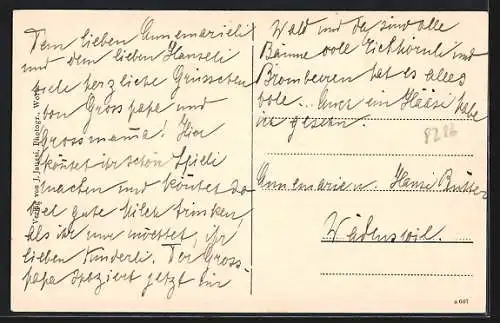 Dem lieben Annemarieli
und dem lieben Hanseli
viele herzliche Grüsschen
von Grosspapa und
Grossmama! Hier
könntet ihr schön Spieli
machen und könntet da-
bei gute Milch trinken,
als ihr nur möchtet, ihr
lieben Kinderli. Der Gross-
papa spaziert jetzt im
Wald und da sind alle
Bäume voll Eichhörnli und
Brombeeren hat es alles
volle... Auch ein Hääsi habe
ich gesehn.
8226
Annemarie u. Hansi
Wädenswil.
Verlag von J. Jaeggi, Photogr.,
a 647